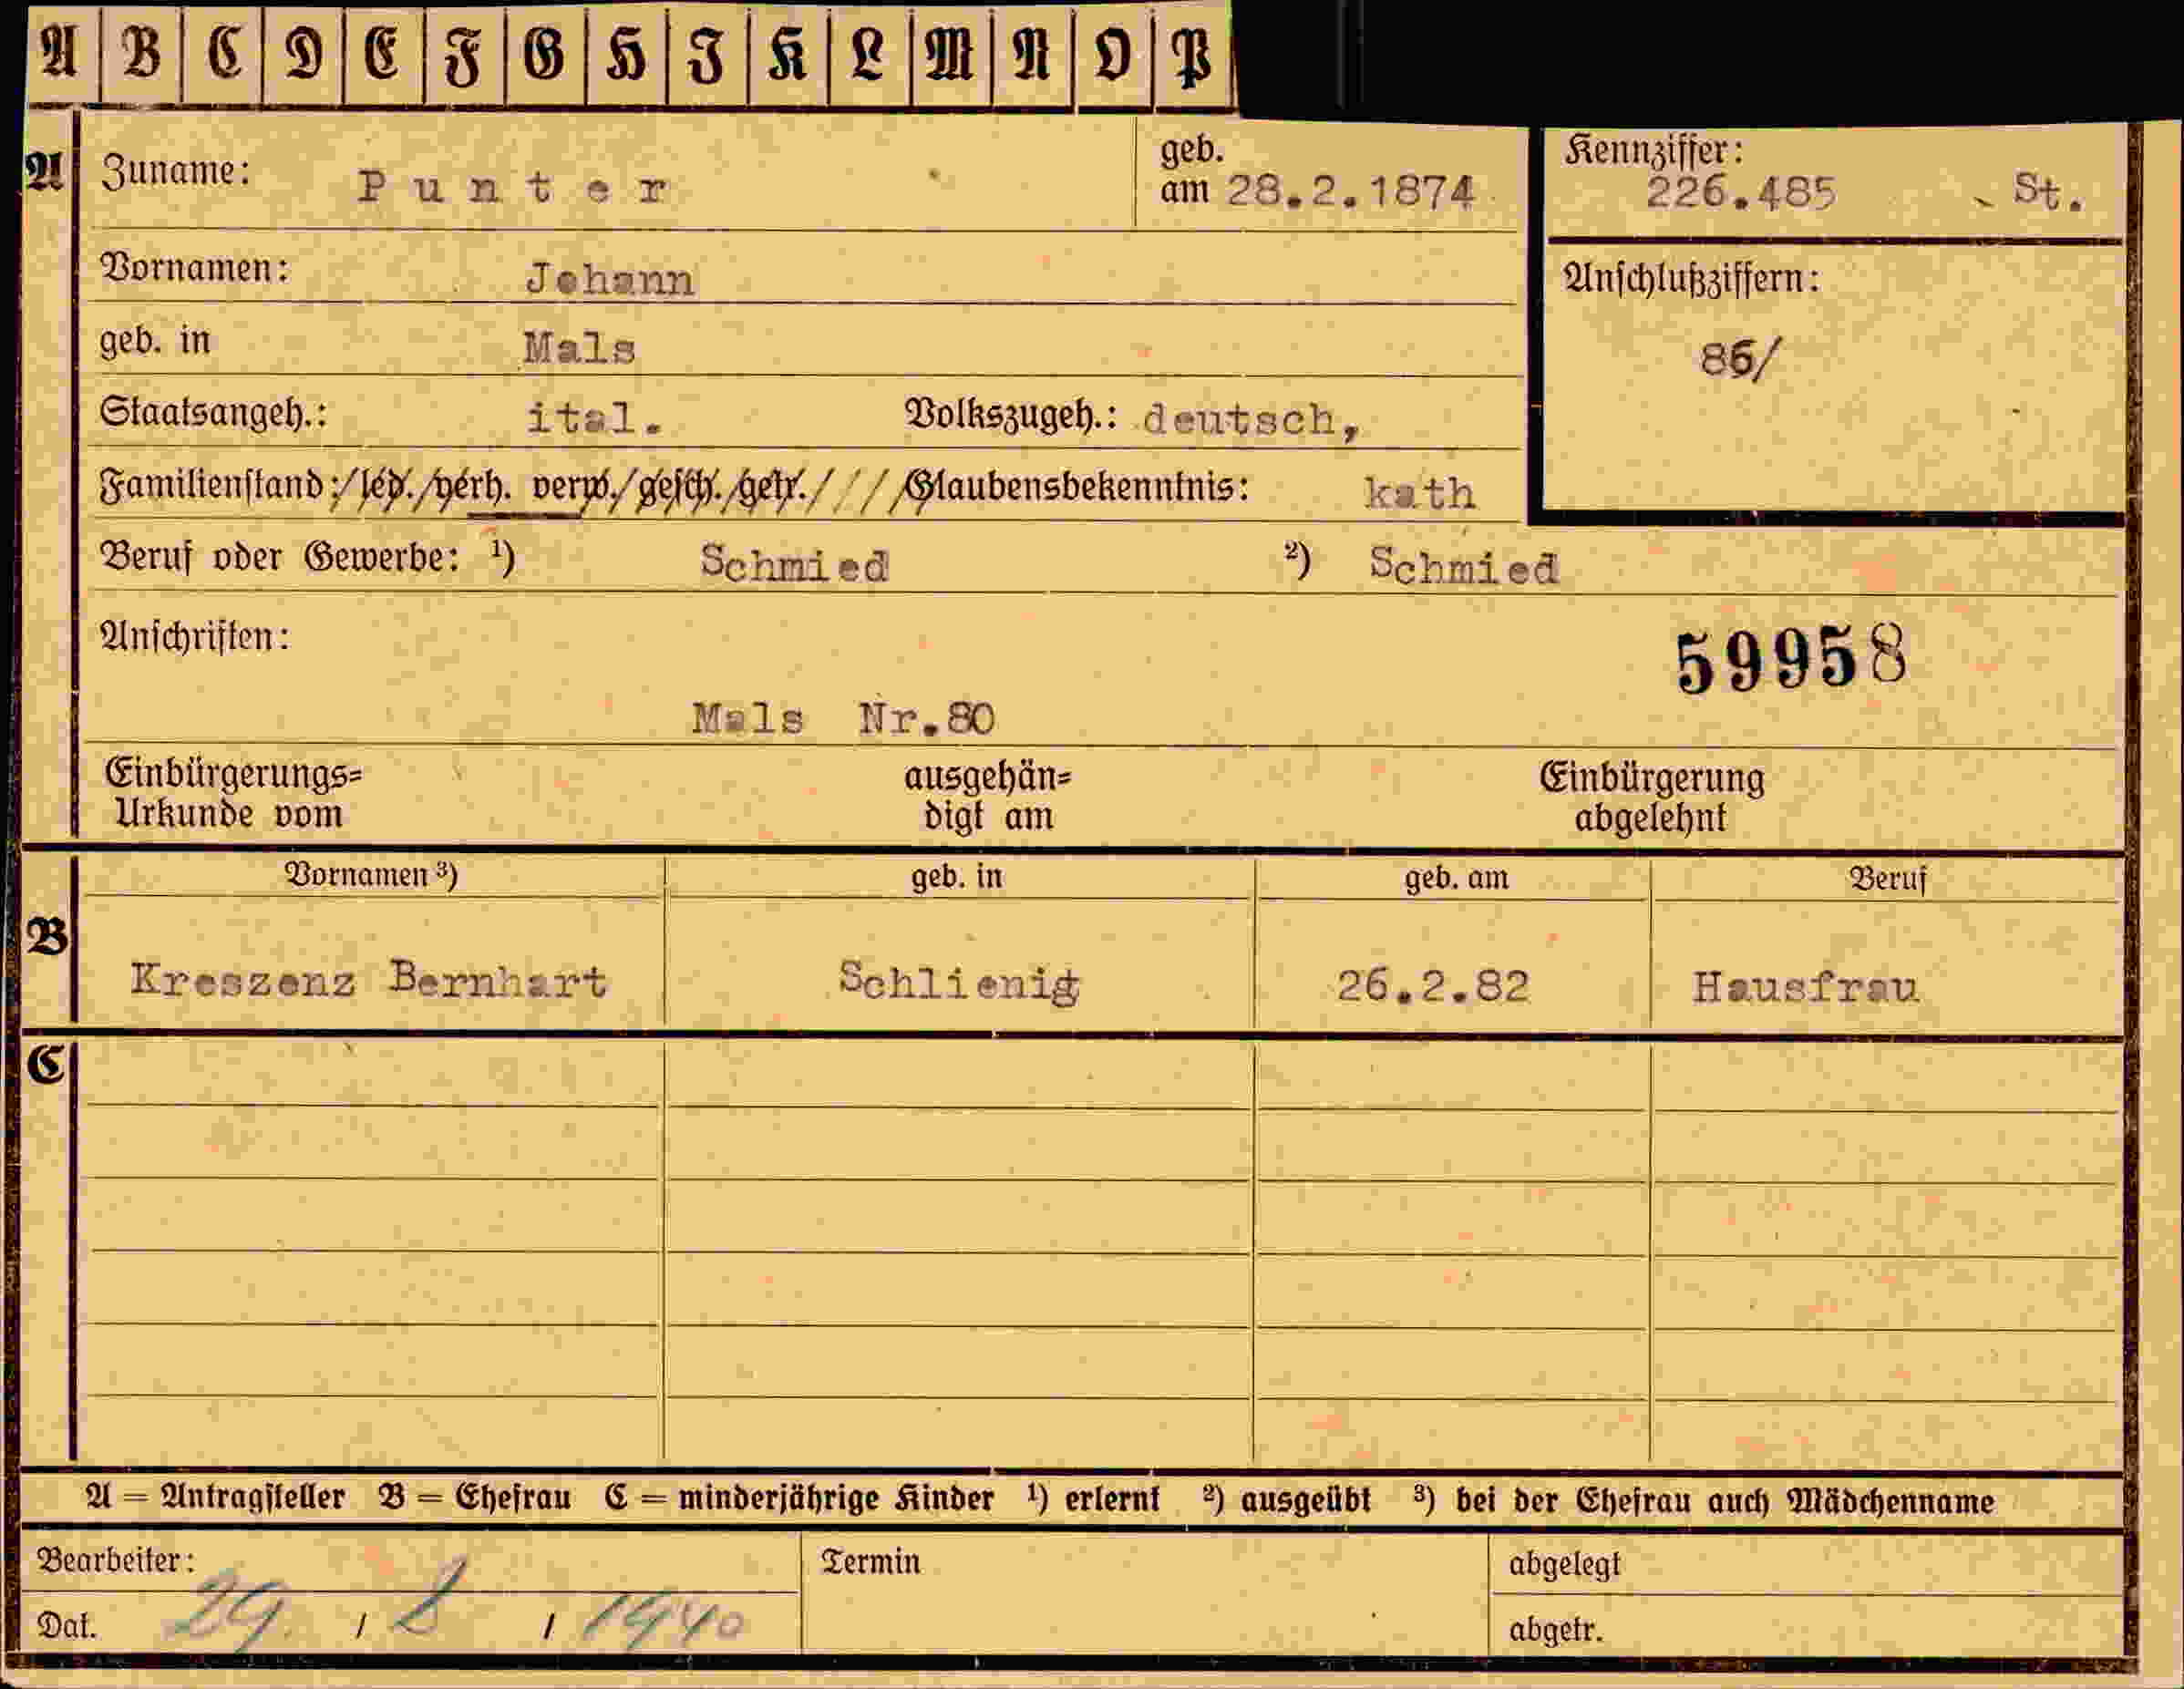 A B C D E F G H I K L M N O P
A Zuname: Punter geb. am 28.2.1874 Kennziffer: 226.485 St.
Vornamen: Johann Anschlußziffern:
geb. in Mals 86/
Staatsangeh.: ital. Volkszugeh.: deutsch,
Familienstand:/led./verh. verw./gesch./getr./ / / /Glaubensbekenntnis: kath
Beruf oder Gewerbe: ¹) Schmied ²) Schmied
Anschriften: 59958
Mals Nr.80
Einbürgerungs= ausgehän= Einbürgerung
Urkunde vom digt am abgelehnt
Vornamen ³) geb. in geb. am Beruf
B Kreszenz Bernhart Schlienig 26.2.82 Hausfrau
C
A = Antragsteller B = Ehefrau C = minderjährige Kinder ¹) erlernt ²) ausgeübt ³) bei der Ehefrau auch Mädchenname
Bearbeiter: Termin abgelegt
Dat. 29. / 2 / 1940 abgetr.